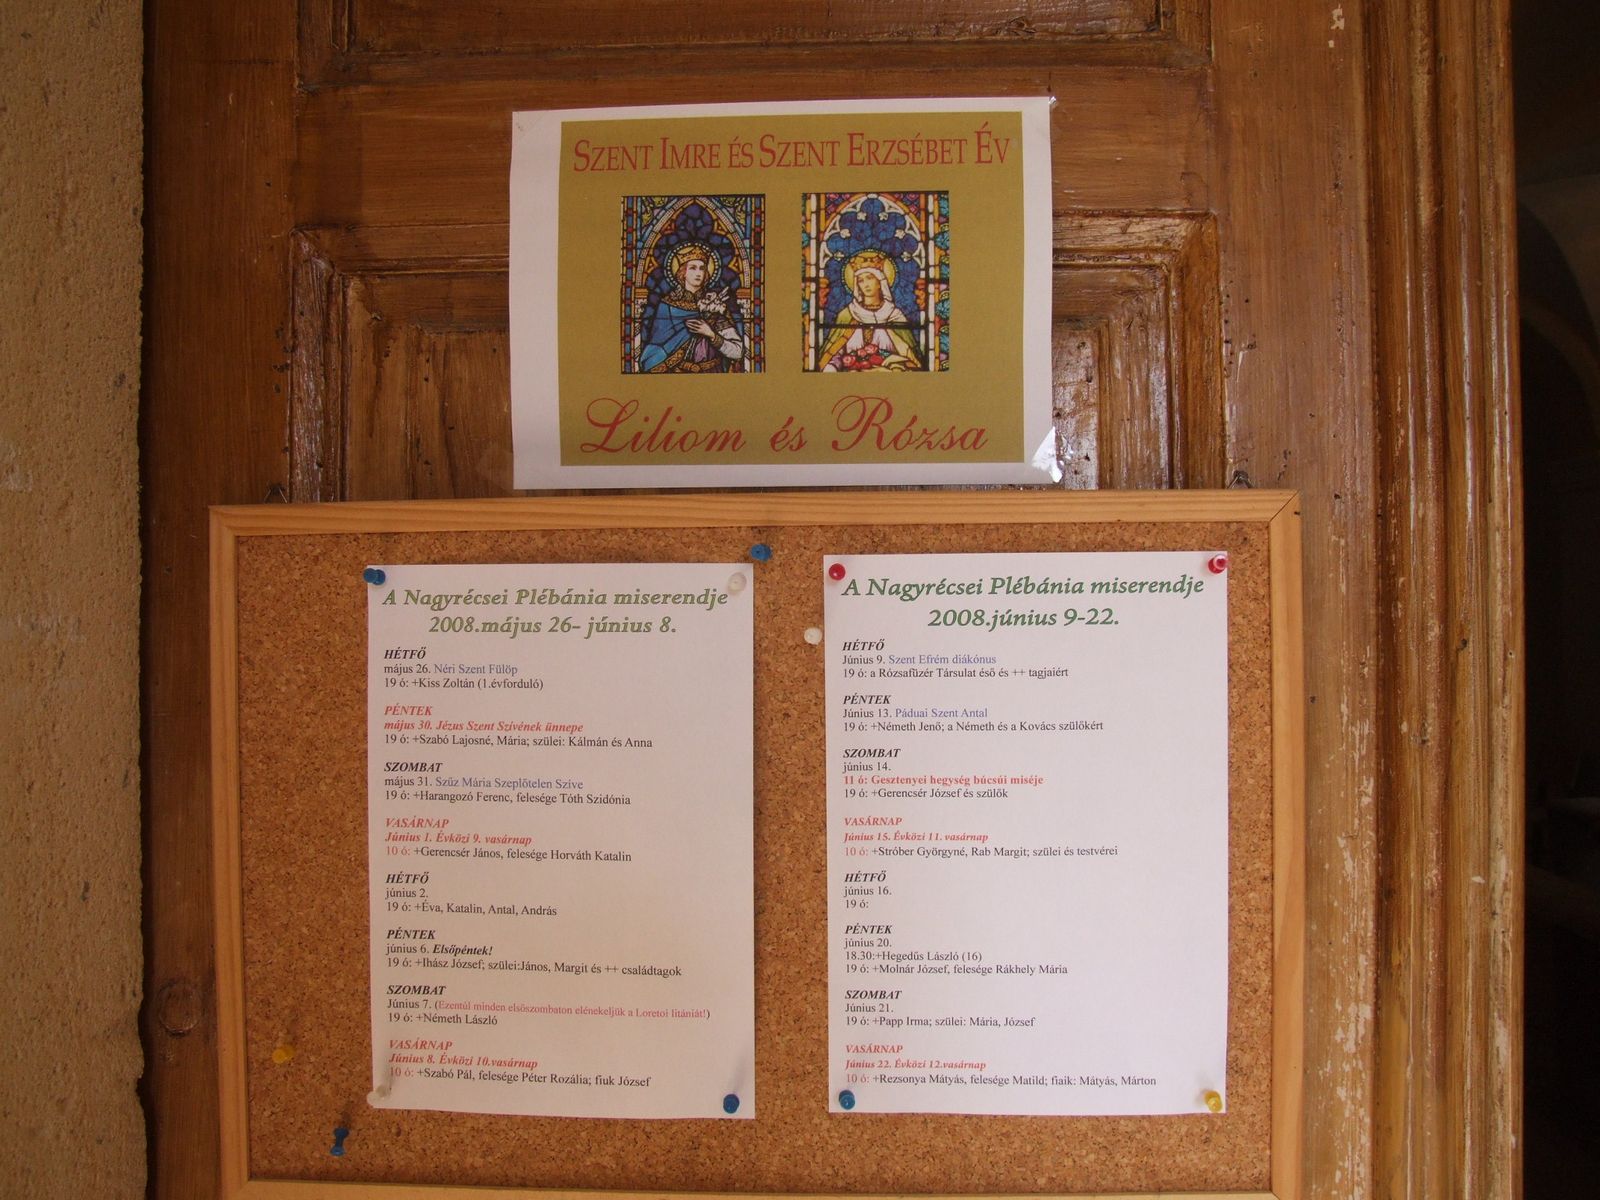 SZENT IMRE ÉS SZENT ERZSÉBET ÉV
Liliom és Rózsa
A Nagyrécsei Plébánia miserendje
2008.május 26- június 8.
HÉTFŐ
május 26. Néri Szent Fülöp
19 ó: +Kiss Zoltán (1.évforduló)
PÉNTEK
május 30. Jézus Szent Szívének ünnepe
19 ó: +Szabó Lajosné, Mária; szülei: Kálmán és Anna
SZOMBAT
május 31. Szűz Mária Szeplőtelen Szíve
19 ó: +Harangozó Ferenc, felesége Tóth Szidónia
VASÁRNAP
Június 1. Évközi 9. vasárnap
10 ó: +Gerencsér János, felesége Horváth Katalin
HÉTFŐ
június 2.
19 ó: +Éva, Katalin, Antal, András
PÉNTEK
június 6. Elsőpéntek!
19 ó: +Ihász József; szülei:János, Margit és ++ családtagok
SZOMBAT
Június 7. (Ezentúl minden elsőszombaton elénekeljük a Loretoi litániát!)
19 ó: +Németh László
VASÁRNAP
Június 8. Évközi 10.vasárnap
10 ó: +Szabó Pál, felesége Péter Rozália; fiuk József
A Nagyrécsei Plébánia miserendje
2008.június 9-22.
HÉTFŐ
Június 9. Szent Efrém diákónus
19 ó: a Rózsafüzér Társulat éső és ++ tagjaiért
PÉNTEK
Június 13. Páduai Szent Antal
19 ó: +Németh Jenő; a Németh és a Kovács szülőkért
SZOMBAT
június 14.
11 ó: Gesztenyei hegység búcsúi miséje
19 ó: +Gerencsér József és szülők
VASÁRNAP
Június 15. Évközi 11. vasárnap
10 ó: +Stróber Györgyné, Rab Margit; szülei és testvérei
HÉTFŐ
június 16.
19 ó:
PÉNTEK
június 20.
18.30:+Hegedűs László (16)
19 ó: +Molnár József, felesége Rákhely Mária
SZOMBAT
Június 21.
19 ó: +Papp Irma; szülei: Mária, József
VASÁRNAP
Június 22. Évközi 12.vasárnap
10 ó: +Rezsonya Mátyás, felesége Matild; fiaik: Mátyás, Márton